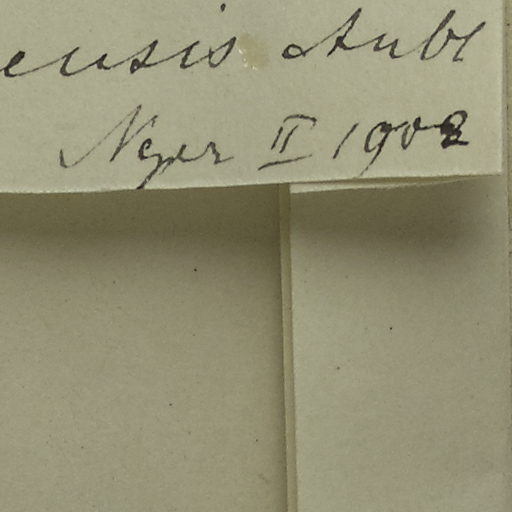 ensis Aubl
II 1902